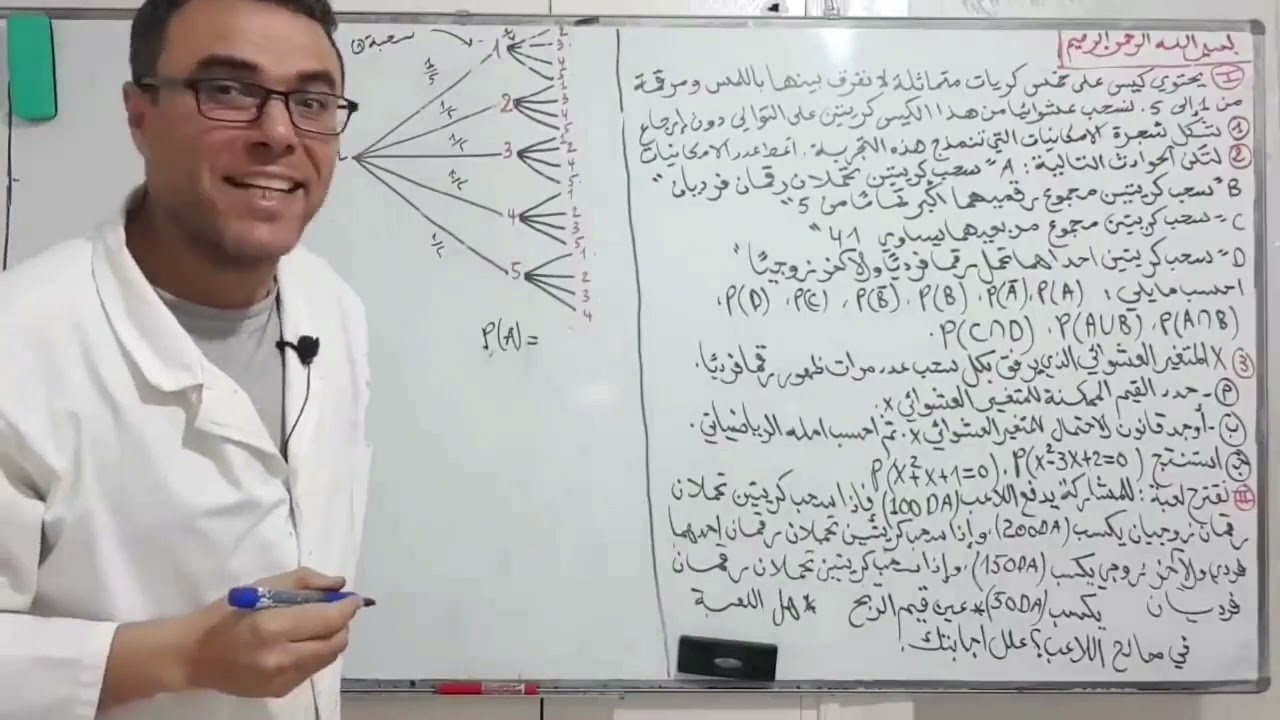 بسم الله الرحمن الرحيم
I يحتوي كيس على خمس كريات متماثلة لا نفرق بينها باللمس ومرقمة
من 1 إلى 5. نسحب عشوائيا من هذا الكيس كريتين على التوالي دون إرجاع
1 لنشكل شجرة الامكانيات التي تنمذج هذه التجربة. أعط عدد الامكانيات
2 لتكن الحوادث التالية: A "سحب كريتين تحملان رقمان فرديان"
B "سحب كريتين مجموع رقميهما أكبر تماما من 5"
C = سحب كريتين مجموع مربعيهما يساوي 41"
D = سحب كريتين احداهما تحمل رقما فرديا والآخر زوجيا"
احسب مايلي: P(A)، P(Ā)، P(B)، P(B̄)، P(C)، P(D).
P(A∩B)، P(A∪B)، P(C∩D).
3 X المتغير العشوائي الذي يرفق بكل سحب عدد مرات ظهور رقما فرديا.
P- حدد القيم الممكنة للمتغير العشوائي X.
ب- أوجد قانون لاحتمال المتغير العشوائي X. ثم احسب امله الرياضياتي.
ج استنتج P(X²-3X+2=0)، P(X²+X+1=0)
II نقترح لعبة: للمشاركة يدفع اللاعب (100DA) فإذا سحب كريتين تحملان
رقمان زوجيان يكسب (200DA)، وإذا سحب كريتين تحملان رقمان احدهما
فردي والآخر زوجي يكسب (150DA)، وإذا سحب كريتين تحملان رقمان
فرديان يكسب (50DA) * عين قيم الربح * هل اللعبة
في صالح اللاعب؟ علل اجابتك.
سحبة
1/5
1/5
1/5
1/5
1/5
1
2
3
4
5
2
3
4
5
1
3
4
5
1
2
4
5
1
2
3
5
1
2
3
4
P(A) =